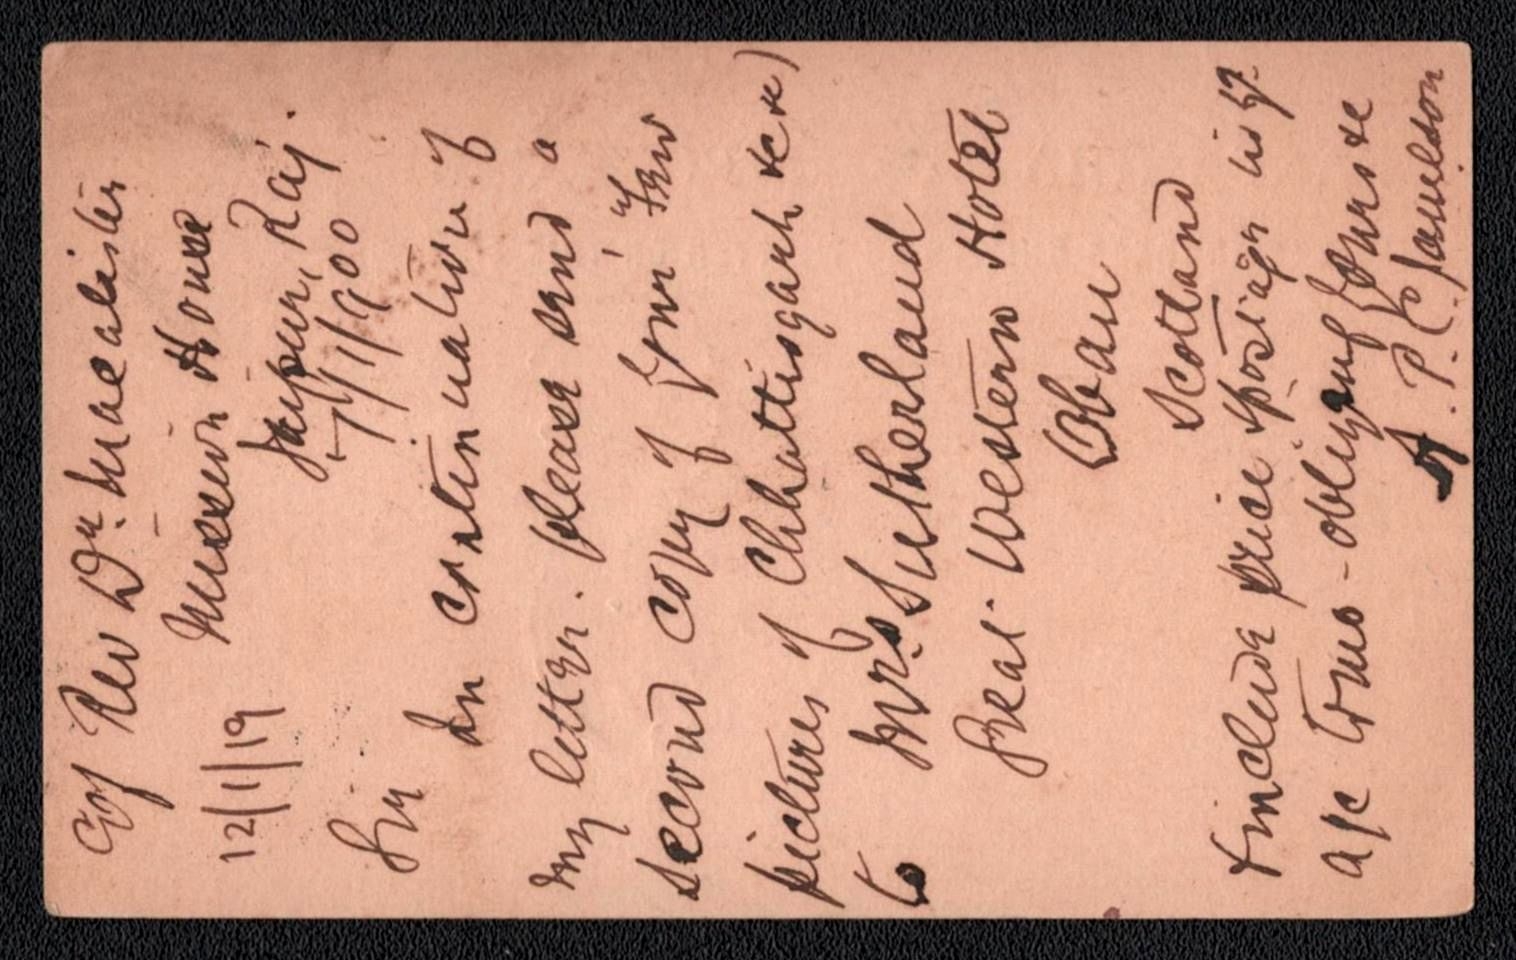 C/of Rev Dr. Macalister
Mission House
12/1/19
Jaypur, Raj.
7/1/1900
Sir
In continuation of
my letter. please send a
second copy of your "Few
pictures of Chhattisgarh &c &c)
to Mrs Sutherland
Great Western Hotel
Oban
Scotland
& include price & postage in my
a/c & thus obliging yours &c
A. P. C. Jamieson